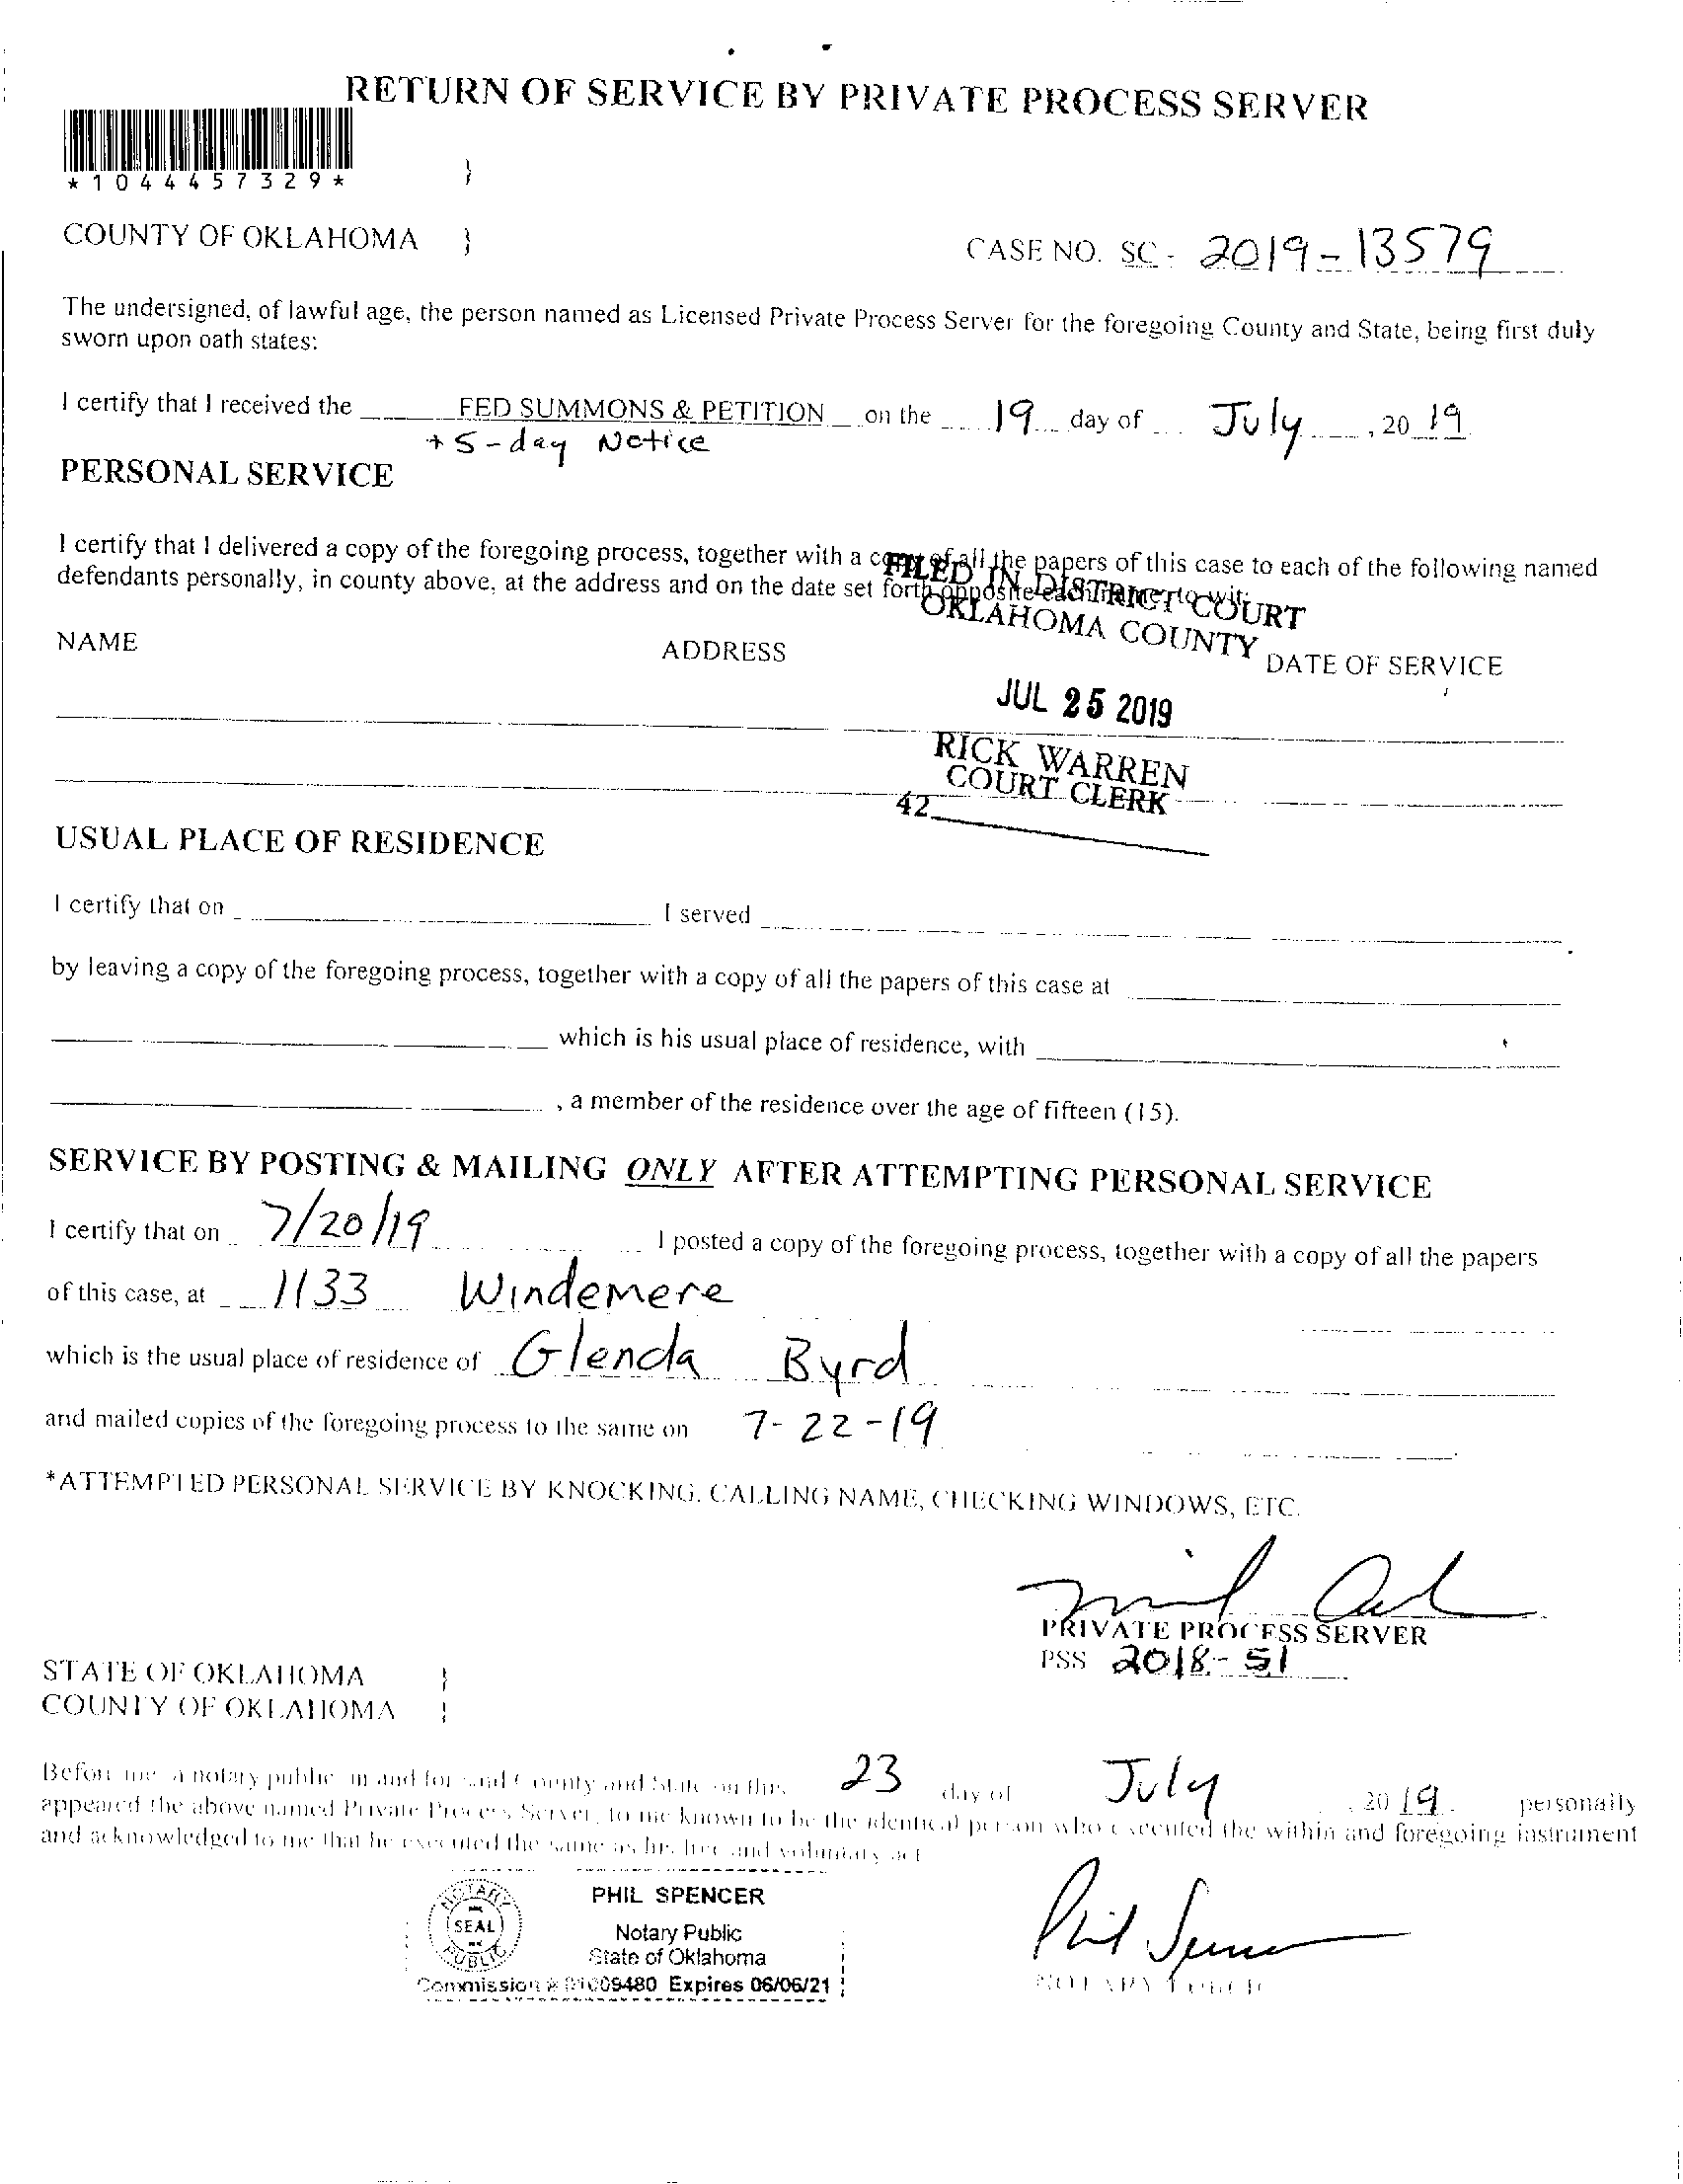 RETURN OF SERVICE BY PRIVATE PROCESS SERVER
*1044457329* }
COUNTY OF OKLAHOMA } CASE NO. SC- 2019-13579
The undersigned, of lawful age, the person named as Licensed Private Process Server for the foregoing County and State, being first duly
sworn upon oath states:
I certify that I received the FED SUMMONS & PETITION on the 19 day of July, 20 19
+ 5-day Notice
PERSONAL SERVICE
I certify that I delivered a copy of all the foregoing process, together with a copy of all the papers of this case to each of the following named
defendants personally, in county above, at the address and on the date set forth opposite each name, to wit:
FILED IN DISTRICT COURT
OKLAHOMA COUNTY
NAME ADDRESS DATE OF SERVICE
JUL 25 2019
RICK WARREN
COURT CLERK
42
USUAL PLACE OF RESIDENCE
I certify that on I served
by leaving a copy of the foregoing process, together with a copy of all the papers of this case at
which is his usual place of residence, with
, a member of the residence over the age of fifteen (15).
SERVICE BY POSTING & MAILING ONLY AFTER ATTEMPTING PERSONAL SERVICE
I certify that on 7/20/19 I posted a copy of the foregoing process, together with a copy of all the papers
of this case, at 1133 Windemere
which is the usual place of residence of Glenda Byrd
and mailed copies of the foregoing process to the same on 7-22-19
*ATTEMPTED PERSONAL SERVICE BY KNOCKING, CALLING NAME, CHECKING WINDOWS, ETC.
PRIVATE PROCESS SERVER
PSS 2018-51
STATE OF OKLAHOMA }
COUNTY OF OKLAHOMA }
Before me a notary public in and for said County and State on this 23 day of July, 20 19. personally
appeared the above named Private Process Server, to me known to be the identical person who executed the within and foregoing instrument
and acknowledged to me that he executed the same as his free and voluntary act
NOTARY SEAL PUBLIC
PHIL SPENCER
Notary Public
State of Oklahoma
Commission # 01009480 Expires 06/06/21
Phil Spencer
NOTARY PUBLIC